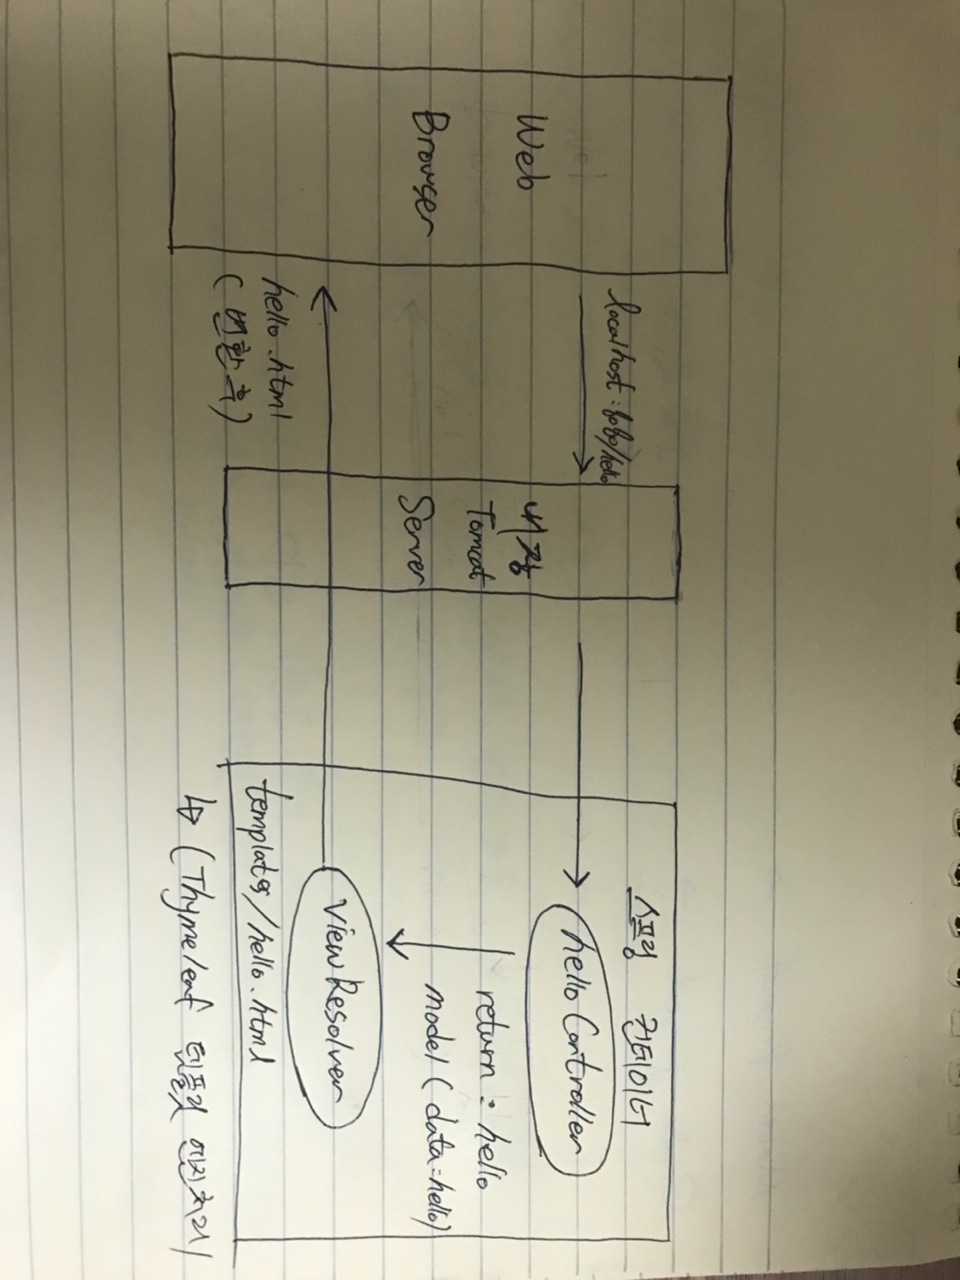 Web
Browser
localhost:8080/hello
내장
Tomcat
Server
스프링 컨테이너
helloController
return : hello
model ( data:hello)
viewResolver
templates/hello.html
↳ (Thymeleaf 템플릿 엔진처리)
hello.html
( 변환 후 )